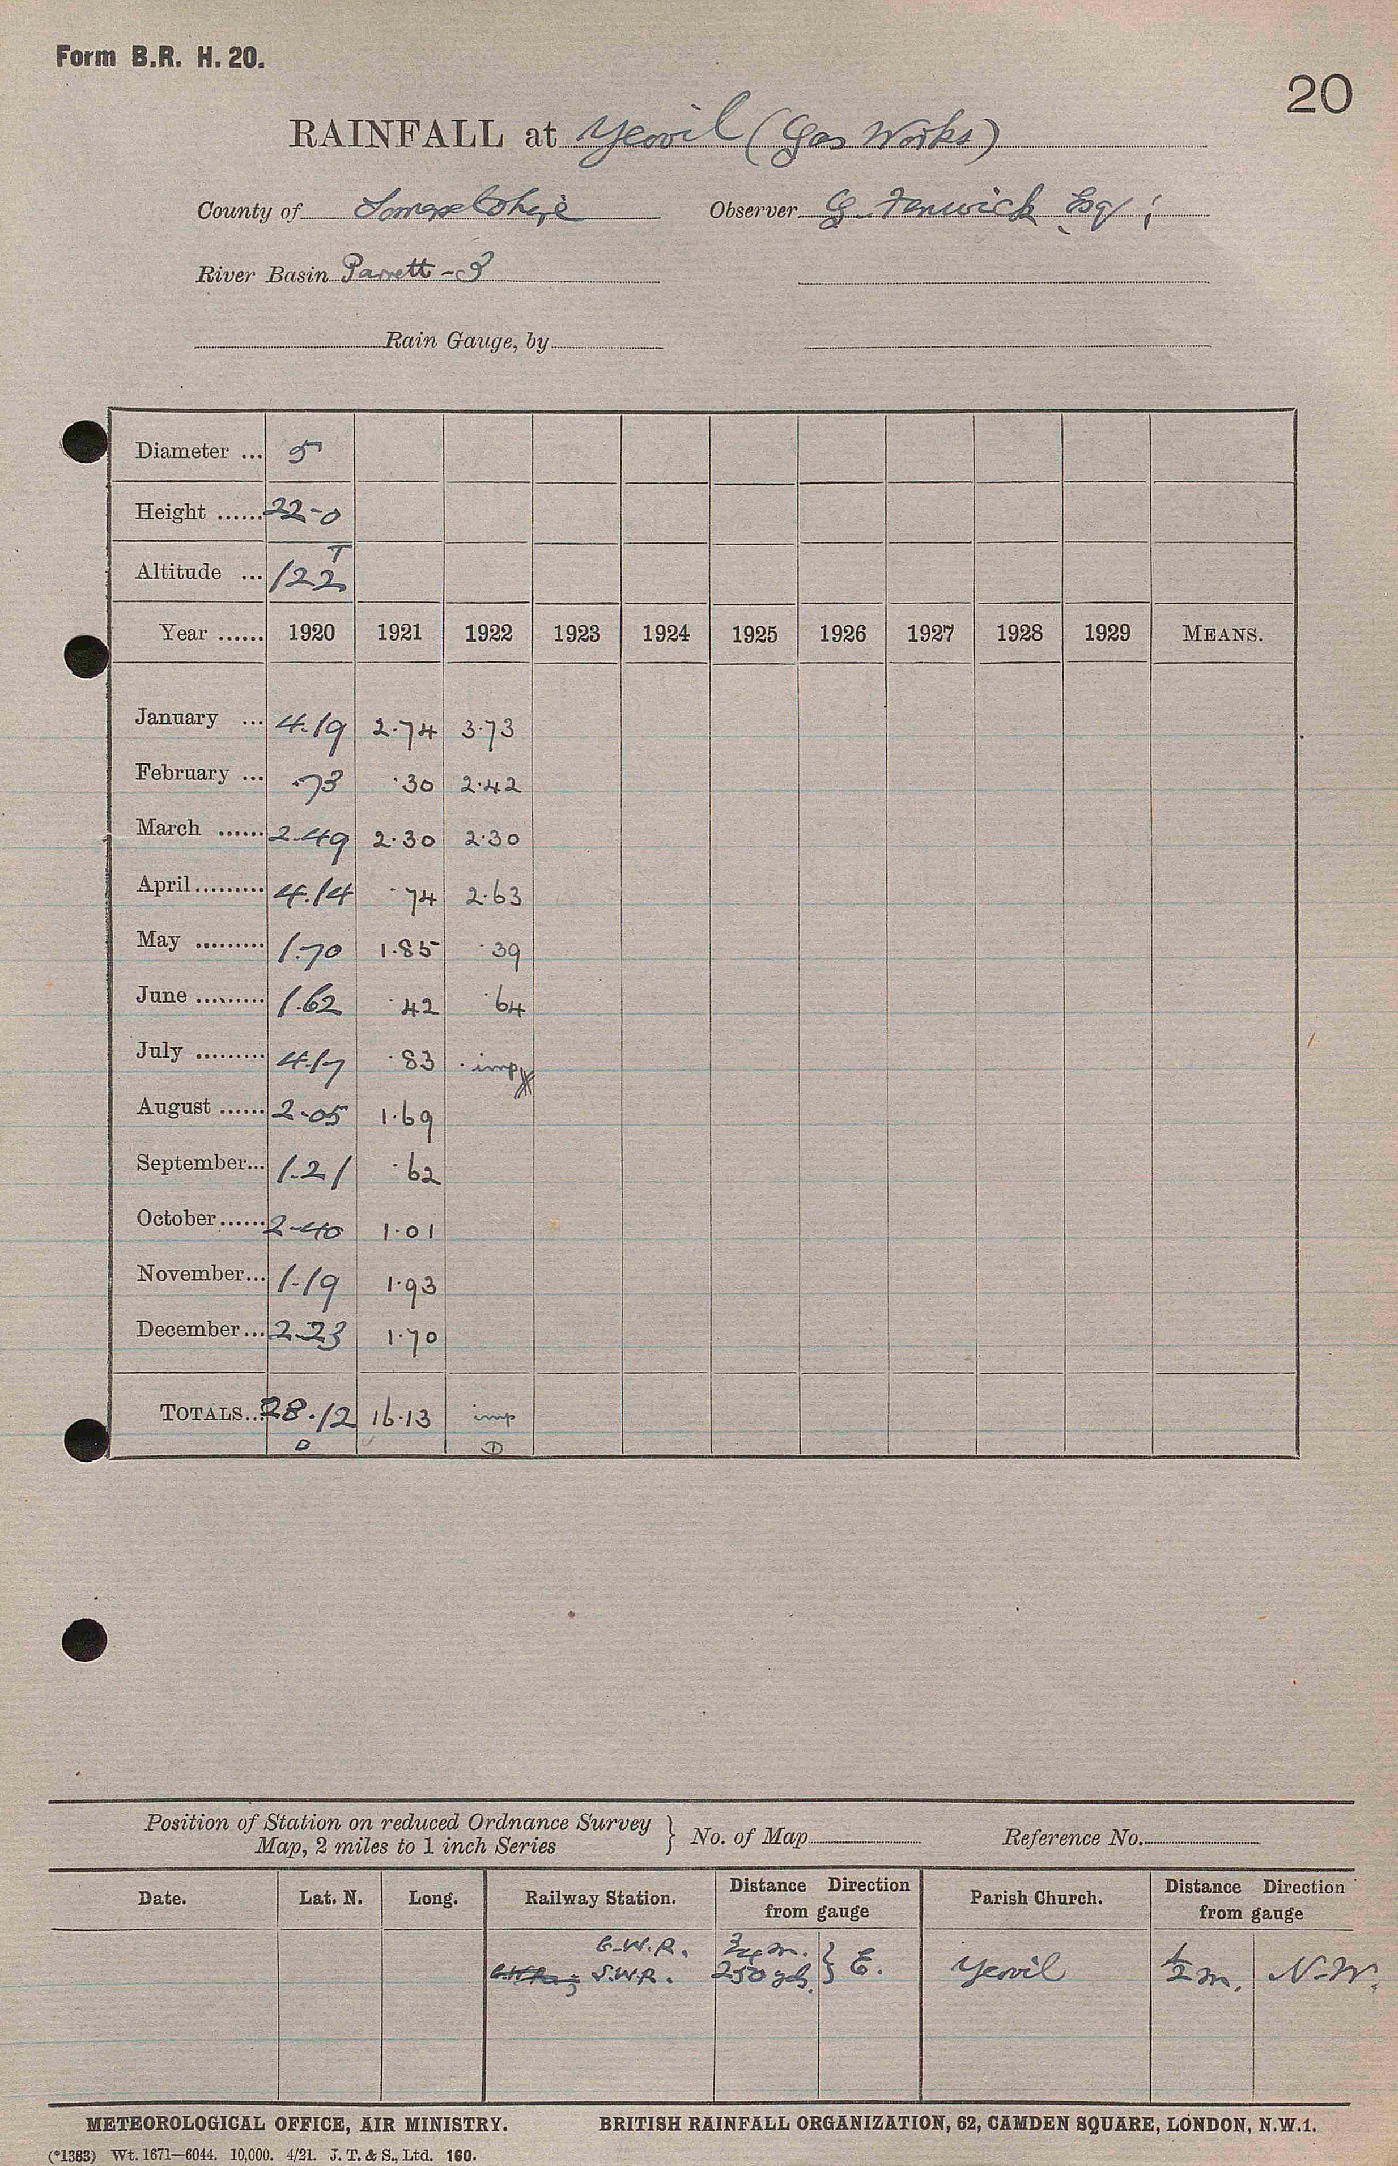 Form B.R. H. 20.
20
RAINFALL at Yeovil (Gas Works)
County of Somersetshire Observer G. Fenwick Esq;
River Basin Parrett - 3
Rain Gauge, by
Diameter ... 5
Height ...... 22-0
Altitude ... 122 T
Year ...... 1920 1921 1922 1923 1924 1925 1926 1927 1928 1929 MEANS.
January ... 4.19 2.74 3.73
February ... .73 .30 2.42
March ...... 2.49 2.30 2.30
April ......... 4.14 .74 2.63
May ......... 1.70 1.85 .39
June ......... 1.62 .42 .64
July ......... 4.17 .83 . imp
August ...... 2.05 1.69
September... 1.21 .62
October ...... 2.40 1.01
November... 1.19 1.93
December ... 2.23 1.70
TOTALS... 28.12 16.13 imp
D D
Position of Station on reduced Ordnance Survey
Map, 2 miles to 1 inch Series } No. of Map Reference No.
Date. Lat. N. Long. Railway Station. Distance Direction from gauge Parish Church. Distance Direction from gauge
G.W.R. 3/4 m.
S.W.R. 250 yds. } E. Yeovil 1/2 m. N-W.
METEOROLOGICAL OFFICE, AIR MINISTRY. BRITISH RAINFALL ORGANIZATION, 62, CAMDEN SQUARE, LONDON, N.W.1.
(*1383) Wt. 1671—6044. 10,000. 4/21. J. T. & S., Ltd. 160.